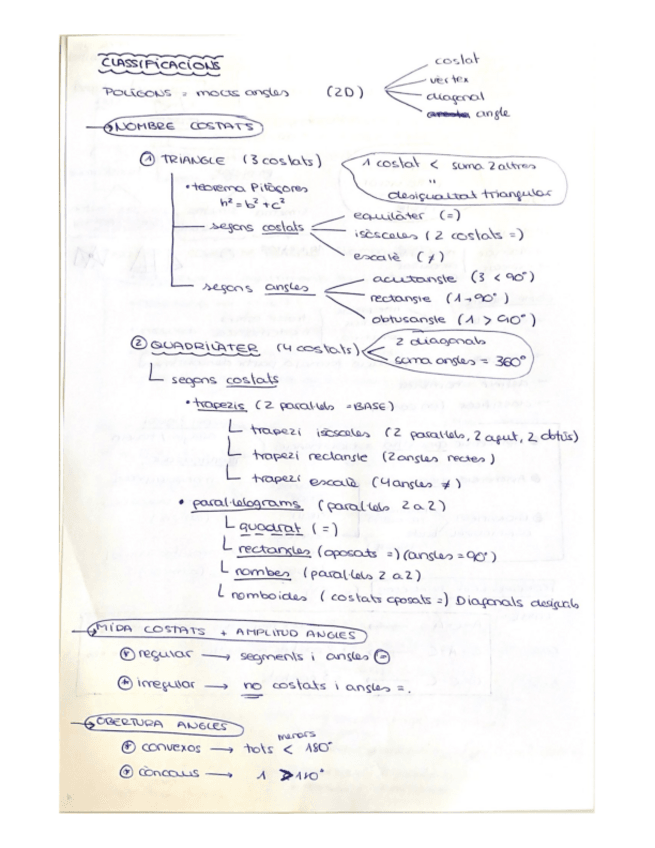 CLASSIFICACIONS
POLÍGONS = molts angles (2D)
costat
vèrtex
diagonal
angle
→ NOMBRE COSTATS
① TRIANGLE (3 costats)
1 costat < suma 2 altres
"
desigualtat triangular
• teorema Pitàgores
h² = b² + c²
segons costats
equilàter (=)
isòsceles (2 costats =)
escalè (≠)
segons angles
acutangle (3 < 90°)
rectangle (1→90°)
obtusangle (1 > 90°)
② QUADRILÀTER (4 costats)
2 diagonals
suma angles = 360°
segons costats
• trapezis (2 paral·lels = BASE)
trapezi isòsceles (2 paral·lels, 2 agut, 2 obtús)
trapezi rectangle (2 angles rectes)
trapezi escalè (4 angles ≠)
• paral·lelograms (paral·lels 2 a 2)
quadrat (=)
rectangles (oposats =) (angles = 90°)
rombes (paral·lels 2 a 2)
romboides (costats oposats =) Diagonals desiguals
→ MIDA COSTATS + AMPLITUD ANGLES
regular → segments i angles =
irregular → no costats i angles =.
→ OBERTURA ANGLES
menors
convexos → tots < 180°
còncaus → 1 > 180°